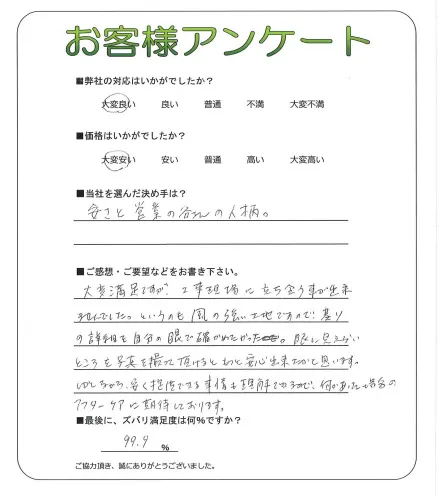 お客様アンケート
■弊社の対応はいかがでしたか？
大変良い 良い 普通 不満 大変不満
■価格はいかがでしたか？
大変安い 安い 普通 高い 大変高い
■当社を選んだ決め手は？
安さと営業の の人柄。
■ご感想・ご要望などをお書き下さい。
大変満足ですが、工事現場に立ち会う事が出来
ませんでした。というのも風の強い土地ですので、
の詳細を自分の眼で確かめたかった。眼に見えない
ところを写真を撮って頂けるともっと安心出来たかと思います。
しかしながら、安く提供できる事情も理解できるので、何かあった場合の
アフターケアに期待しております。
■最後に、ズバリ満足度は何%ですか？
99.9 %
ご協力頂き、誠にありがとうございました。